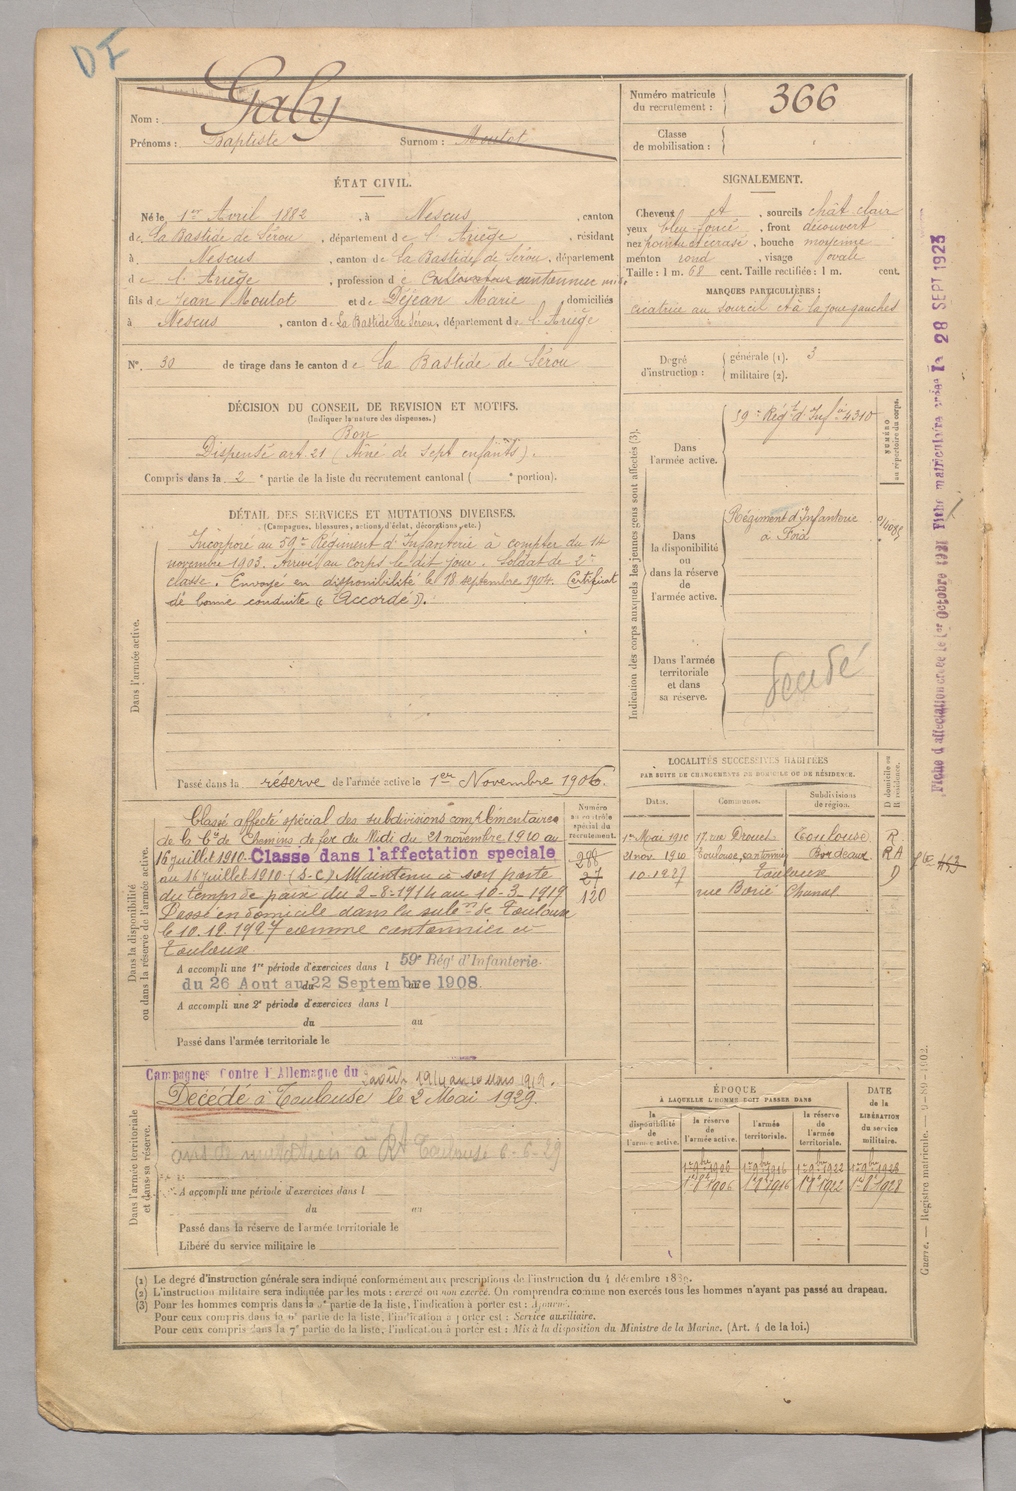 DF
Nom : Galy
Prénoms : Baptiste Surnom : Moulot
Numéro matricule du recrutement : 366
Classe de mobilisation :
ÉTAT CIVIL.
Né le 1er Avril 1882, à Nescus, canton
de La Bastide de Sérou, département de l'Ariège, résidant
à Nescus, canton de La Bastide de Sérou, département
de l'Ariège, profession de Cultivateur cantonnier midi
fils de Jean Moulot et de Déjean Marie domiciliés
à Nescus, canton de La Bastide de Sérou, département de l'Ariège
N° 30 de tirage dans le canton de La Bastide de Sérou
SIGNALEMENT.
Cheveux et, sourcils chât clair
yeux bleu foncé, front découvert
nez pointu et écrasé, bouche moyenne
menton rond, visage ovale
Taille : 1 m. 68 cent. Taille rectifiée : 1 m. cent.
MARQUES PARTICULIÈRES :
cicatrice au sourcil et à la joue gauches
Degré d'instruction : générale (1). 3
militaire (2).
DÉCISION DU CONSEIL DE REVISION ET MOTIFS.
(Indiquer la nature des dispenses.)
Bon
Dispensé art 21 (Aîné de sept enfants).
Compris dans la 2e partie de la liste du recrutement cantonal ( e portion).
DÉTAIL DES SERVICES ET MUTATIONS DIVERSES.
(Campagnes, blessures, actions d'éclat, décorations, etc.)
Dans l'armée active.
Incorporé au 59e Régiment d'Infanterie à compter du 14
novembre 1903. Arrivé au corps le dit jour. Soldat de 2e
classe. Envoyé en disponibilité le 18 septembre 1904. Certificat
de bonne conduite « Accordé ».
Passé dans la réserve de l'armée active le 1er Novembre 1906.
Indication des corps auxquels les jeunes gens sont affectés (3).
Dans l'armée active.
59e Régt d'Infie 4310
NUMÉRO au répertoire du corps.
Dans la disponibilité ou dans la réserve de l'armée active.
Régiment d'Infanterie
à Foix
Dans l'armée territoriale et dans sa réserve.
décédé
LOCALITÉS SUCCESSIVES HABITÉES
PAR SUITE DE CHANGEMENTS DE DOMICILE OU DE RÉSIDENCE.
Dates. Communes. Subdivisions de région. D domicile ou R résidence.
1er Mai 1910 Toulouse R
21 nov. 1910 Toulouse, cantonnier Bordeaux R A
10-1927 Toulouse D
Dans la disponibilité ou dans la réserve de l'armée active.
Numéro au contrôle spécial du recrutement.
298
27
120
Classé affecté spécial des subdivisions complémentaires
de la Cie de Chemins de fer du Midi du 21 novembre 1910 au
16 juillet 1910. Classe dans l'affectation speciale
au 16 juillet 1910 (S-C) Maintenu à son poste
du temps de paix du 2-8-1914 au 10-3-1919
Passé en domicile dans la subon de Toulouse
le 10.12.1927 comme cantonnier à
Toulouse
A accompli une 1re période d'exercices dans l 59e Régt d'Infanterie
du 26 Aout au 22 Septembre 1908.
A accompli une 2e période d'exercices dans l
du au
Passé dans l'armée territoriale le
Dans l'armée territoriale et dans sa réserve.
Campagnes Contre l'Allemagne du 2 août 1914 au 10 Mars 1919.
Décédé à Toulouse le 2 Mai 1929.
mutation à Toulouse 6-6-29
A accompli une période d'exercices dans l
du au
Passé dans la réserve de l'armée territoriale le
Libéré du service militaire le
ÉPOQUE
À LAQUELLE L'HOMME DOIT PASSER DANS
la disponibilité de l'armée active. la réserve de l'armée active. l'armée territoriale. la réserve de l'armée territoriale. DATE de la LIBÉRATION du service militaire.
1er 9bre 1906 1er 9bre 1916 1er 9bre 1922 1er 9bre 1928
1er 8e 1906 1er 8e 1916 1er 8e 1922 1er 8e 1928
(1) Le degré d'instruction générale sera indiqué conformément aux prescriptions de l'instruction du 4 décembre 1889.
(2) L'instruction militaire sera indiquée par les mots : exercé ou non exercé. On comprendra comme non exercés tous les hommes n'ayant pas passé au drapeau.
(3) Pour les hommes compris dans la 5e partie de la liste, l'indication à porter est : Ajourné.
Pour ceux compris dans la 6e partie de la liste, l'indication à porter est : Service auxiliaire.
Pour ceux compris dans la 7e partie de la liste, l'indication à porter est : Mis à la disposition du Ministre de la Marine. (Art. 4 de la loi.)
Fiche d'affectation créée le 1er Octobre 1921 Fiche matriculaire créée le 28 SEPT 1925
443
Guerre. — Registre matricule. — 9-89-1902.